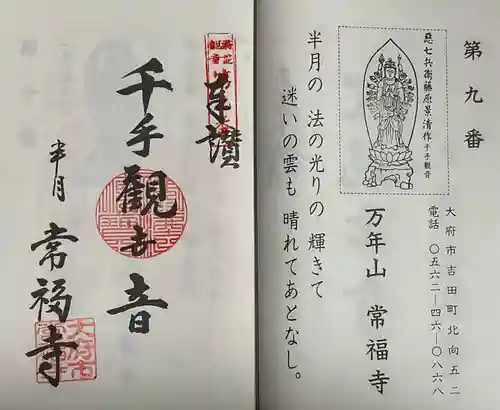 第九番
悪七兵衛藤原景清作 千手観音
大府市吉田町北向五二
電話 〇五六二―四六―〇八六八
万年山 常福寺
半月の 法の光りの 輝きて
迷いの雲も 晴れてあとなし。
奉讃
千手観世音
半月 常福寺